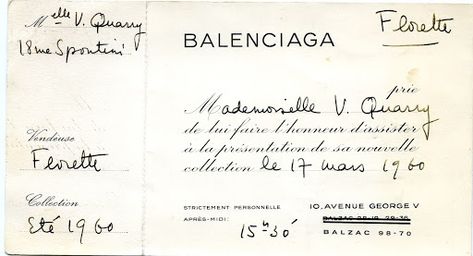 Melle V. Quarry
18 me Spontini
Vendeuse
Florette
Collection
Eté 1960
BALENCIAGA
Florette
prie
Mademoiselle V. Quarry
de lui faire l'honneur d'assister
à la présentation de sa nouvelle
collection le 17 mars 1960
STRICTEMENT PERSONNELLE
APRÈS-MIDI: 15h30
10, AVENUE GEORGE V
BALZAC 98-70